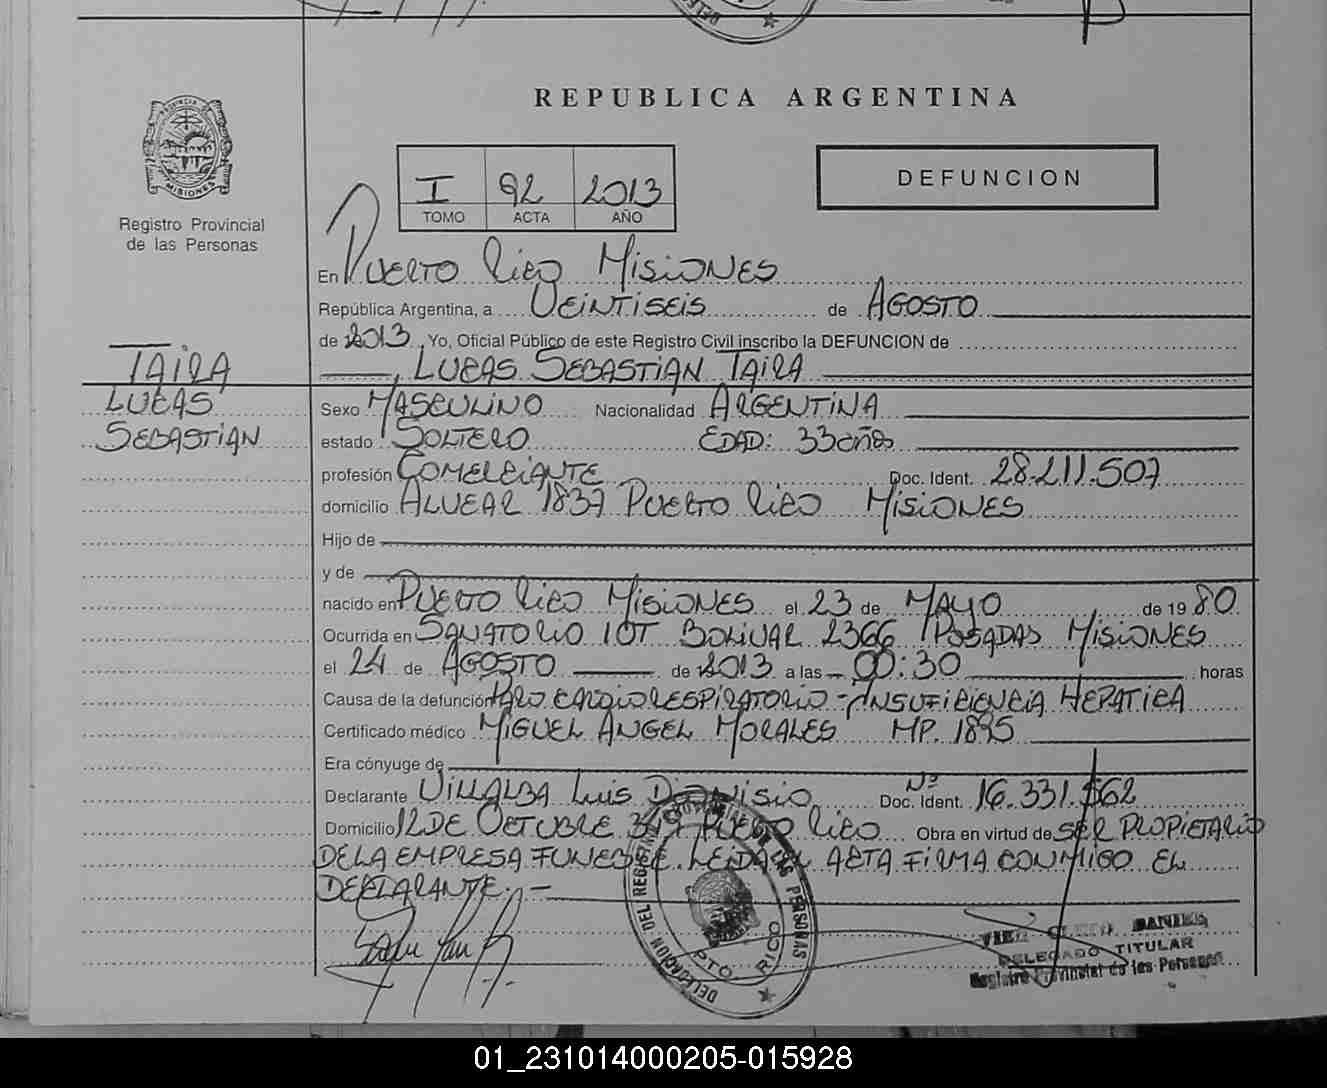 REPUBLICA ARGENTINA
PROVINCIA DE
MISIONES
Registro Provincial
de las Personas
I 92 2013
TOMO ACTA AÑO
DEFUNCION
En PUERTO RICO MISIONES
República Argentina, a VEINTISEIS de AGOSTO
de 2013, Yo, Oficial Público de este Registro Civil inscribo la DEFUNCION de
LUCAS SEBASTIAN TAIRA
TAIRA
LUCAS
SEBASTIAN
Sexo MASCULINO Nacionalidad ARGENTINA
estado SOLTERO EDAD: 33 años
profesión COMERCIANTE Doc. Ident. 28.211.507
domicilio ALVEAR 1837 PUERTO RICO MISIONES
Hijo de
y de
nacido en PUERTO RICO MISIONES el 23 de MAYO de 1980
Ocurrida en SANATORIO IOT BOLIVAR 2366 POSADAS MISIONES
el 24 de AGOSTO de 2013 a las 00:30 horas
Causa de la defunción PARO CARDIORESPIRATORIO - INSUFICIENCIA HEPATICA
Certificado médico MIGUEL ANGEL MORALES MP. 1895
Era cónyuge de
Declarante VILLALBA Luis Dionisio Nº Doc. Ident. 16.331.562
Domicilio 12 DE OCTUBRE PUERTO RICO Obra en virtud de SER PROPIETARIO
DE LA EMPRESA FUNEBRE. LEIDA EL ACTA FIRMA CONMIGO EL
DECLARANTE. -
DELEGACION DEL REGISTRO PROVINCIAL DE LAS PERSONAS
PTO. RICO
DELEGADO TITULAR
Registro Provincial de las Personas
01_231014000205-015928